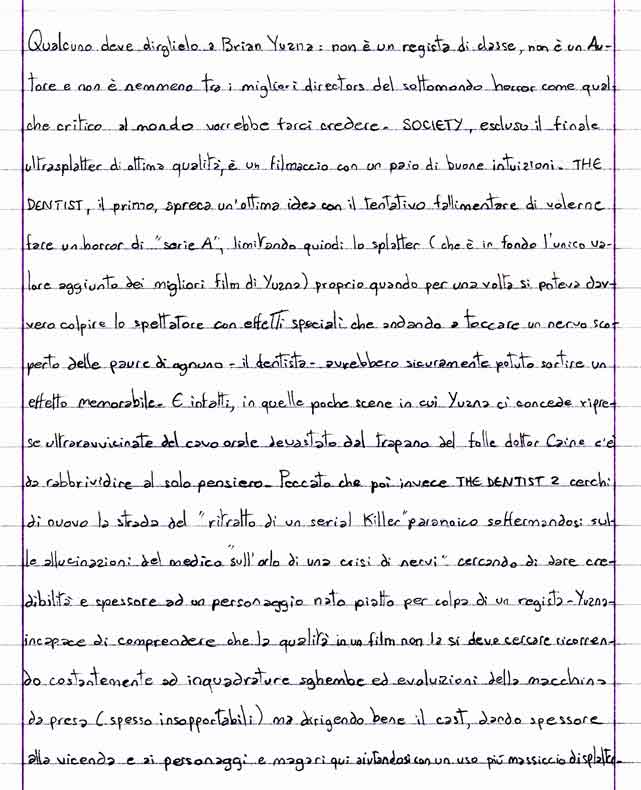 Qualcuno deve dirglielo a Brian Yuzna: non è un regista di classe, non è un Au-
tore e non è nemmeno tra i migliori directors del sottomondo horror come qual-
che critico al mondo vorrebbe farci credere. SOCIETY, escluso il finale
ultrasplatter di ottima qualità, è un filmaccio con un paio di buone intuizioni. THE
DENTIST, il primo, spreca un'ottima idea con il tentativo fallimentare di volerne
fare un horror di "serie A", limitando quindi lo splatter (che è in fondo l'unico va-
lore aggiunto dei migliori film di Yuzna) proprio quando per una volta si poteva dav-
vero colpire lo spettatore con effetti speciali che andando a toccare un nervo sco-
perto delle paure di ognuno - il dentista - avrebbero sicuramente potuto sortire un
effetto memorabile. E infatti, in quelle poche scene in cui Yuzna ci concede ripre-
se ultraravvicinate del cavo orale devastato dal trapano del folle dottor Caine c'è
da rabbrividire al solo pensiero. Peccato che poi invece THE DENTIST 2 cerchi
di nuovo la strada del "ritratto di un serial killer" paranoico soffermandosi sul-
le allucinazioni del medico "sull'orlo di una crisi di nervi" cercando di dare cre-
dibilità e spessore ad un personaggio nato piatto per colpa di un regista - Yuzna -
incapace di comprendere che la qualità in un film non la si deve cercare ricorren-
do costantemente ad inquadrature sghembe ed evoluzioni della macchina
da presa (spesso insopportabili) ma dirigendo bene il cast, dando spessore
alla vicenda e ai personaggi e magari qui aiutandosi con un uso più massiccio di splatter.